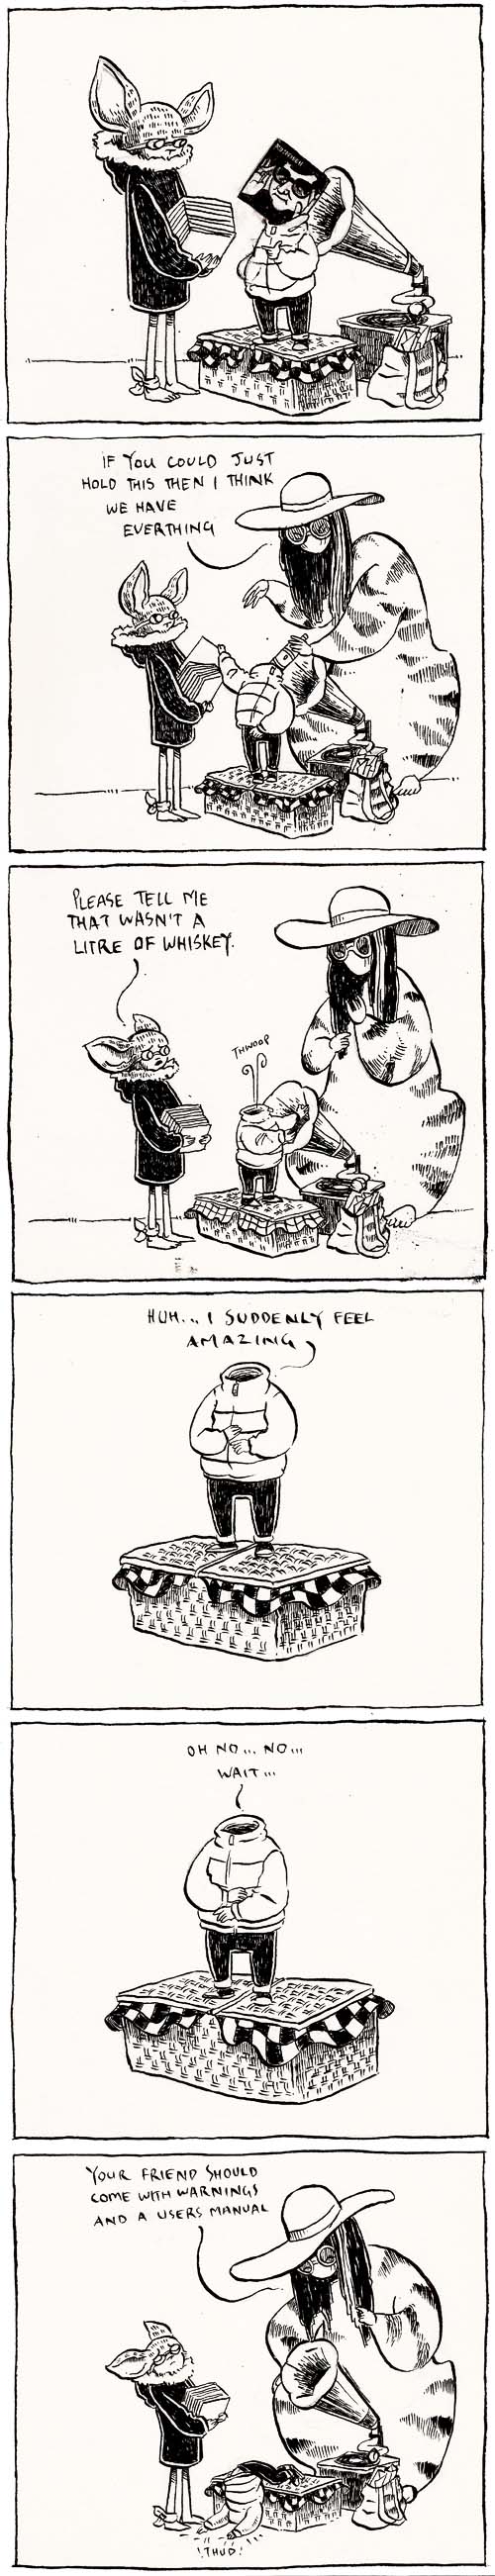 IF YOU COULD JUST
HOLD THIS THEN I THINK
WE HAVE
EVERTHING
PLEASE TELL ME
THAT WASN'T A
LITRE OF WHISKEY.
THWOOP
HUH... I SUDDENLY FEEL
AMAZING
OH NO... NO...
WAIT...
YOUR FRIEND SHOULD
COME WITH WARNINGS
AND A USERS MANUAL
!THUD!